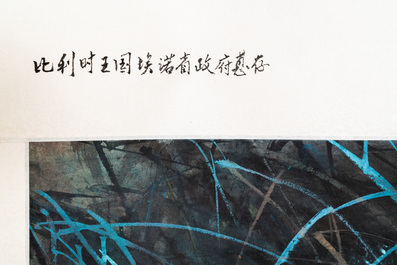 比利时王国埃诺省政府惠存